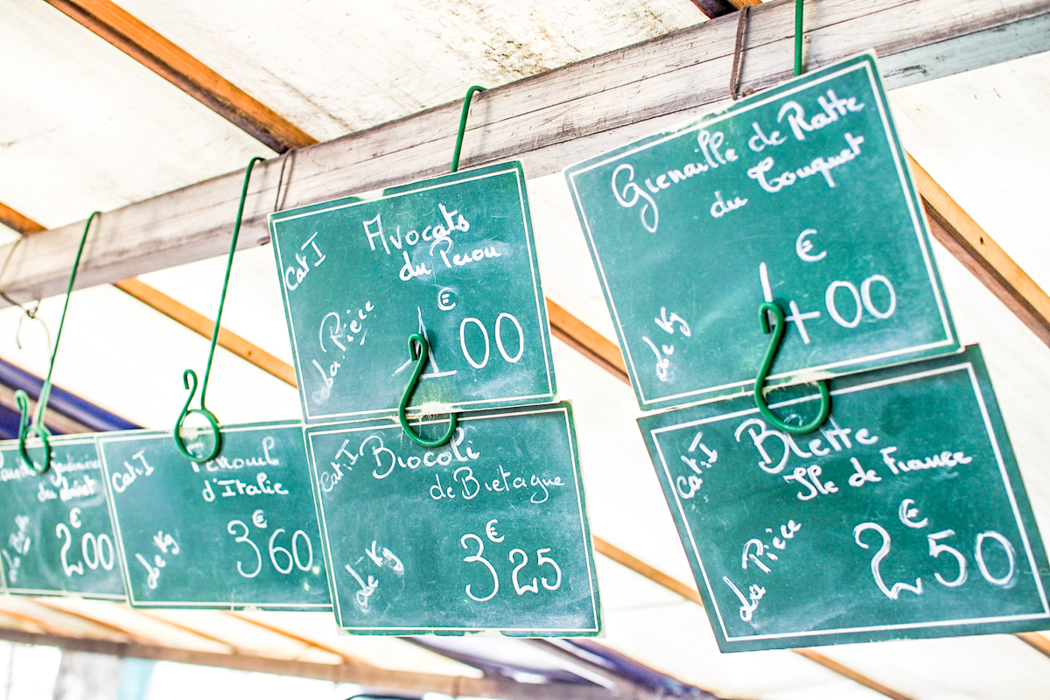 Cat I
Avocats
du Perou
La Pièce
1€00
Grenaille de Ratte
du Touquet
Le Kg
4€00
du
La Pièce
2€00
Cat I
Fenouil
d'Italie
Le Kg
3€60
Cat I
Brocoli
de Bretagne
Le Kg
3€25
Cat I
Blette
Ile de France
La Pièce
2€50